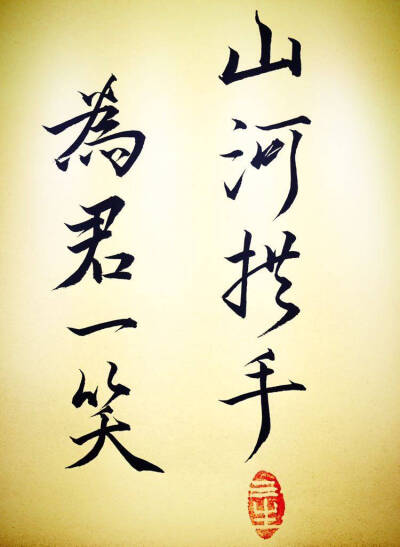 山河拱手
為君一笑
三生